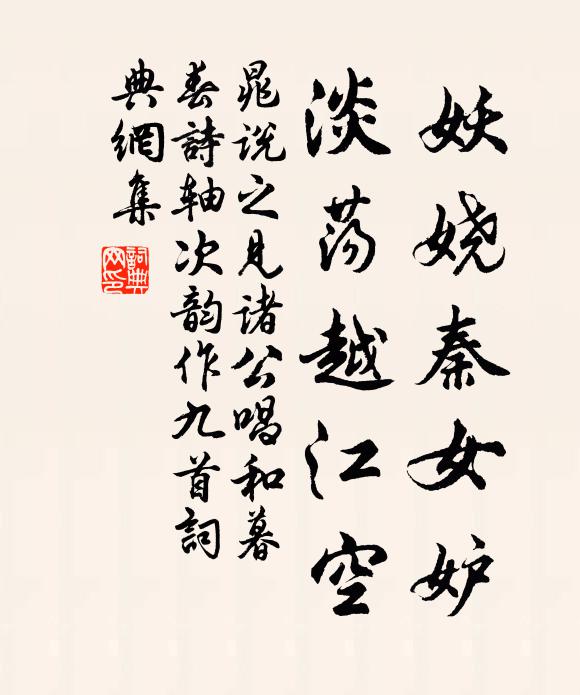 妖娆秦女妒
淡荡越江空
晁说之见诸公唱和暮
春詩軸次韵作九首詞
典網集
詞典網印